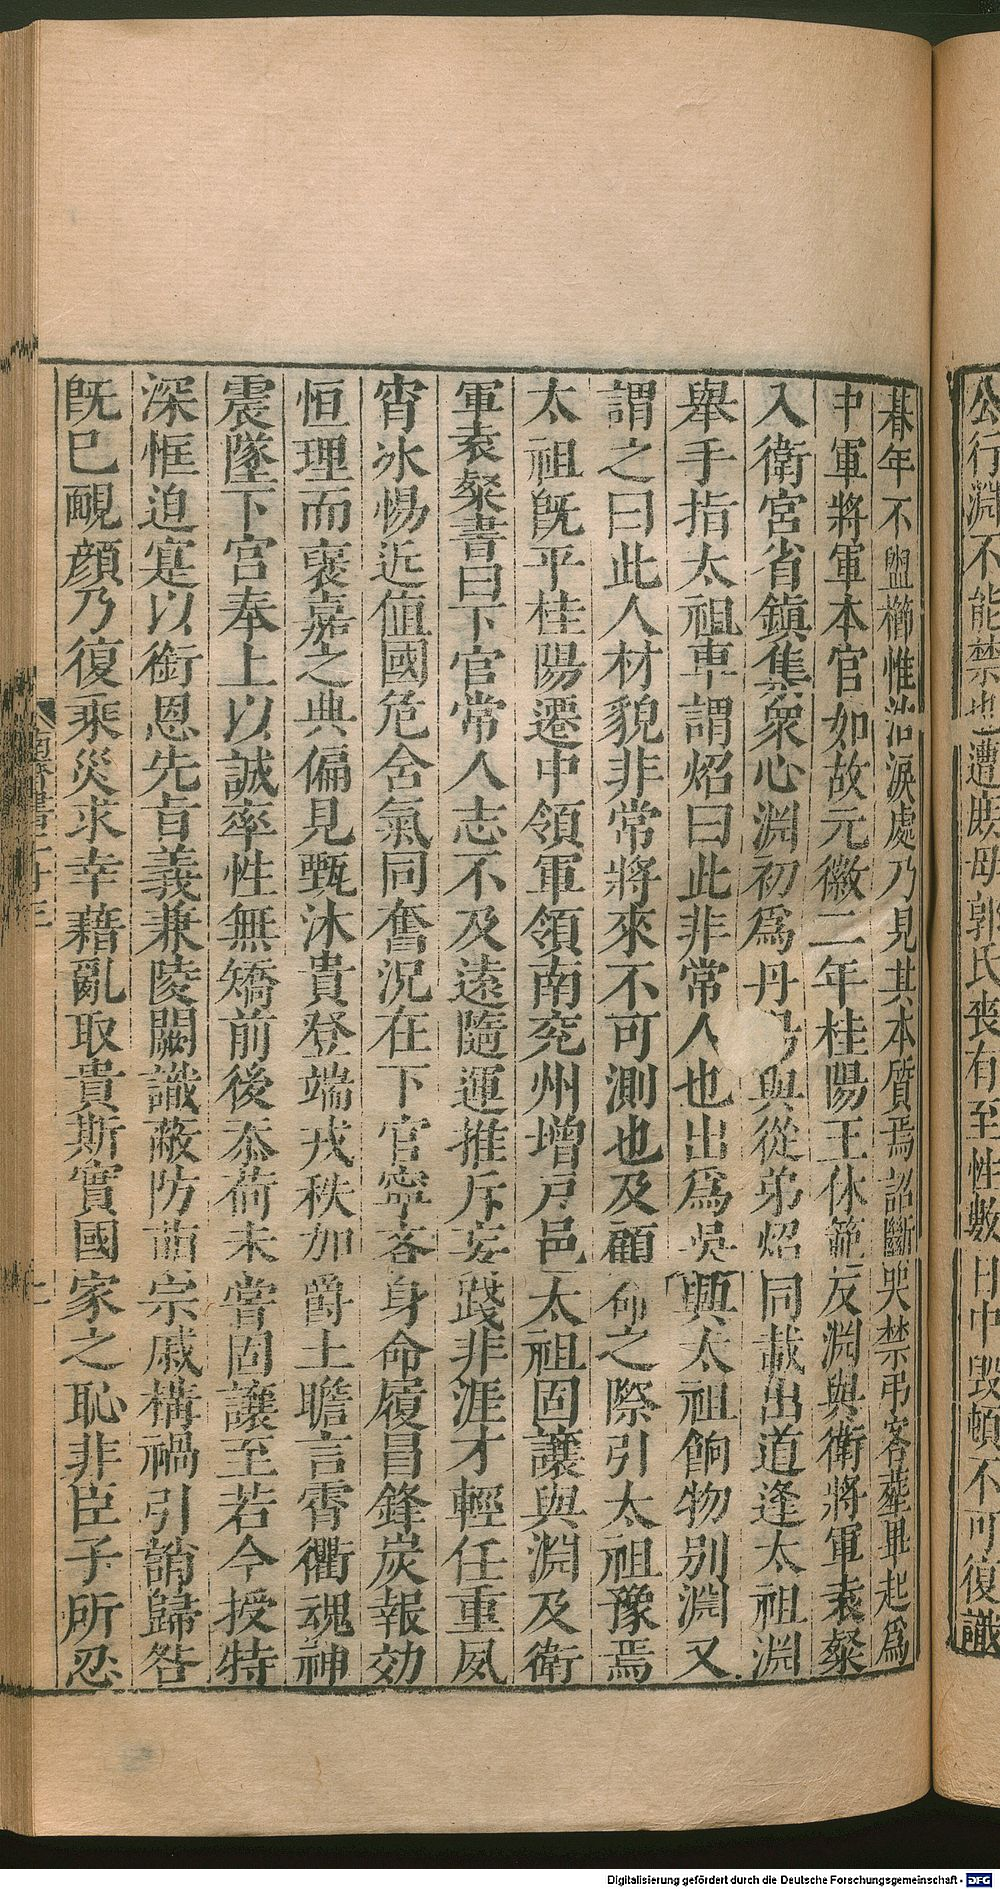 公行淵不能禁也遭庶母郭氏喪有至性數日中毀頓不可復識
朞年不盥櫛惟泣淚處乃見其本質焉詔斷哭禁弔客葬畢起爲
中軍將軍本官如故元徽二年桂陽王休範反淵與衛將軍袁粲
入衛宮省鎮集衆心淵初爲丹陽與從弟炤同載出道逢太祖淵
舉手指太祖車謂炤曰此非常人也出爲吳興太祖餉物別淵又
謂之曰此人材貌非常將來不可測也及顧命之際引太祖豫焉
太祖旣平桂陽遷中領軍領南兖州增戶邑太祖固讓與淵及衛
軍袁粲書曰下官常人志不及遠隨運推斥妄踐非涯才輕任重夙
宵冰惕近値國危含氣同奮況在下官寧吝身命履冒鋒炭報効
恒理而褒嘉之典偏見甄沐貴登端戎秩加爵土瞻言霄衢魂神
震墜下官奉上以誠率性無矯前後忝荷未嘗固讓至若今授特
深恇迫寔以銜恩先旨義兼陵闕識蔽防萌宗戚構禍引誚歸咎
旣已靦顏乃復乘災求幸藉亂取貴斯實國家之恥非臣子所忍
Digitalisierung gefördert durch die Deutsche Forschungsgemeinschaft - DFG